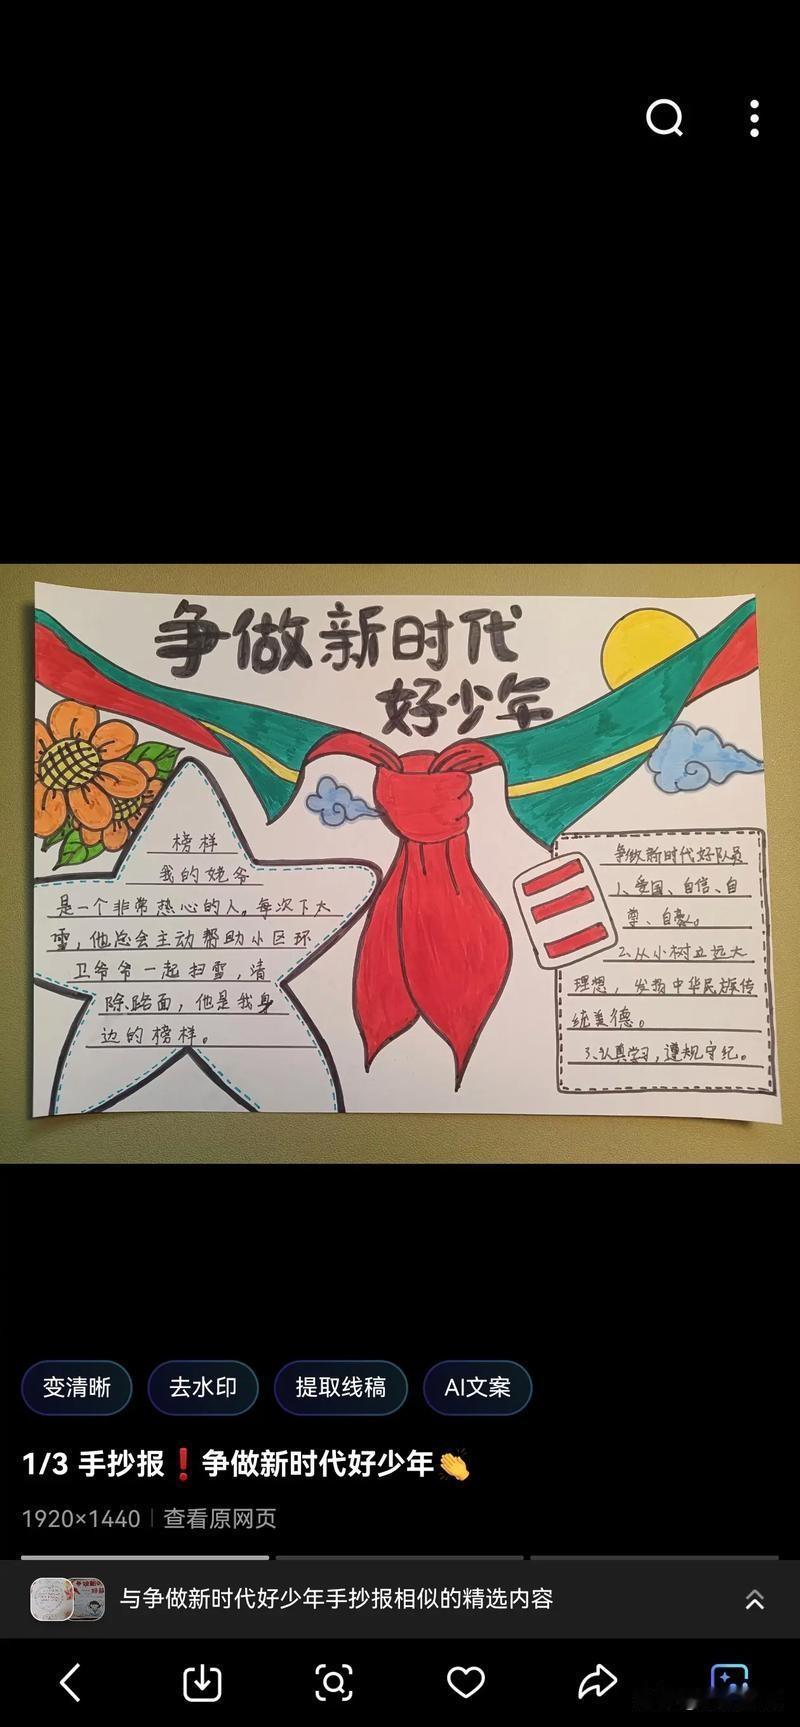 争做新时代
好少年
榜样
我的姥爷
是一个非常热心的人。每次下大
雪，他总会主动帮助小区环
卫爷爷一起扫雪，清
除路面，他是我身
边的榜样。
争做新时代好队员
1、爱国、自信、自
尊、自豪。
2、从小树立远大
理想，发扬中华民族传
统美德。
3、认真学习，遵规守纪。
变清晰
去水印
提取线稿
AI文案
1/3 手抄报❗争做新时代好少年👏
1920×1440
查看原网页
与争做新时代好少年手抄报相似的精选内容